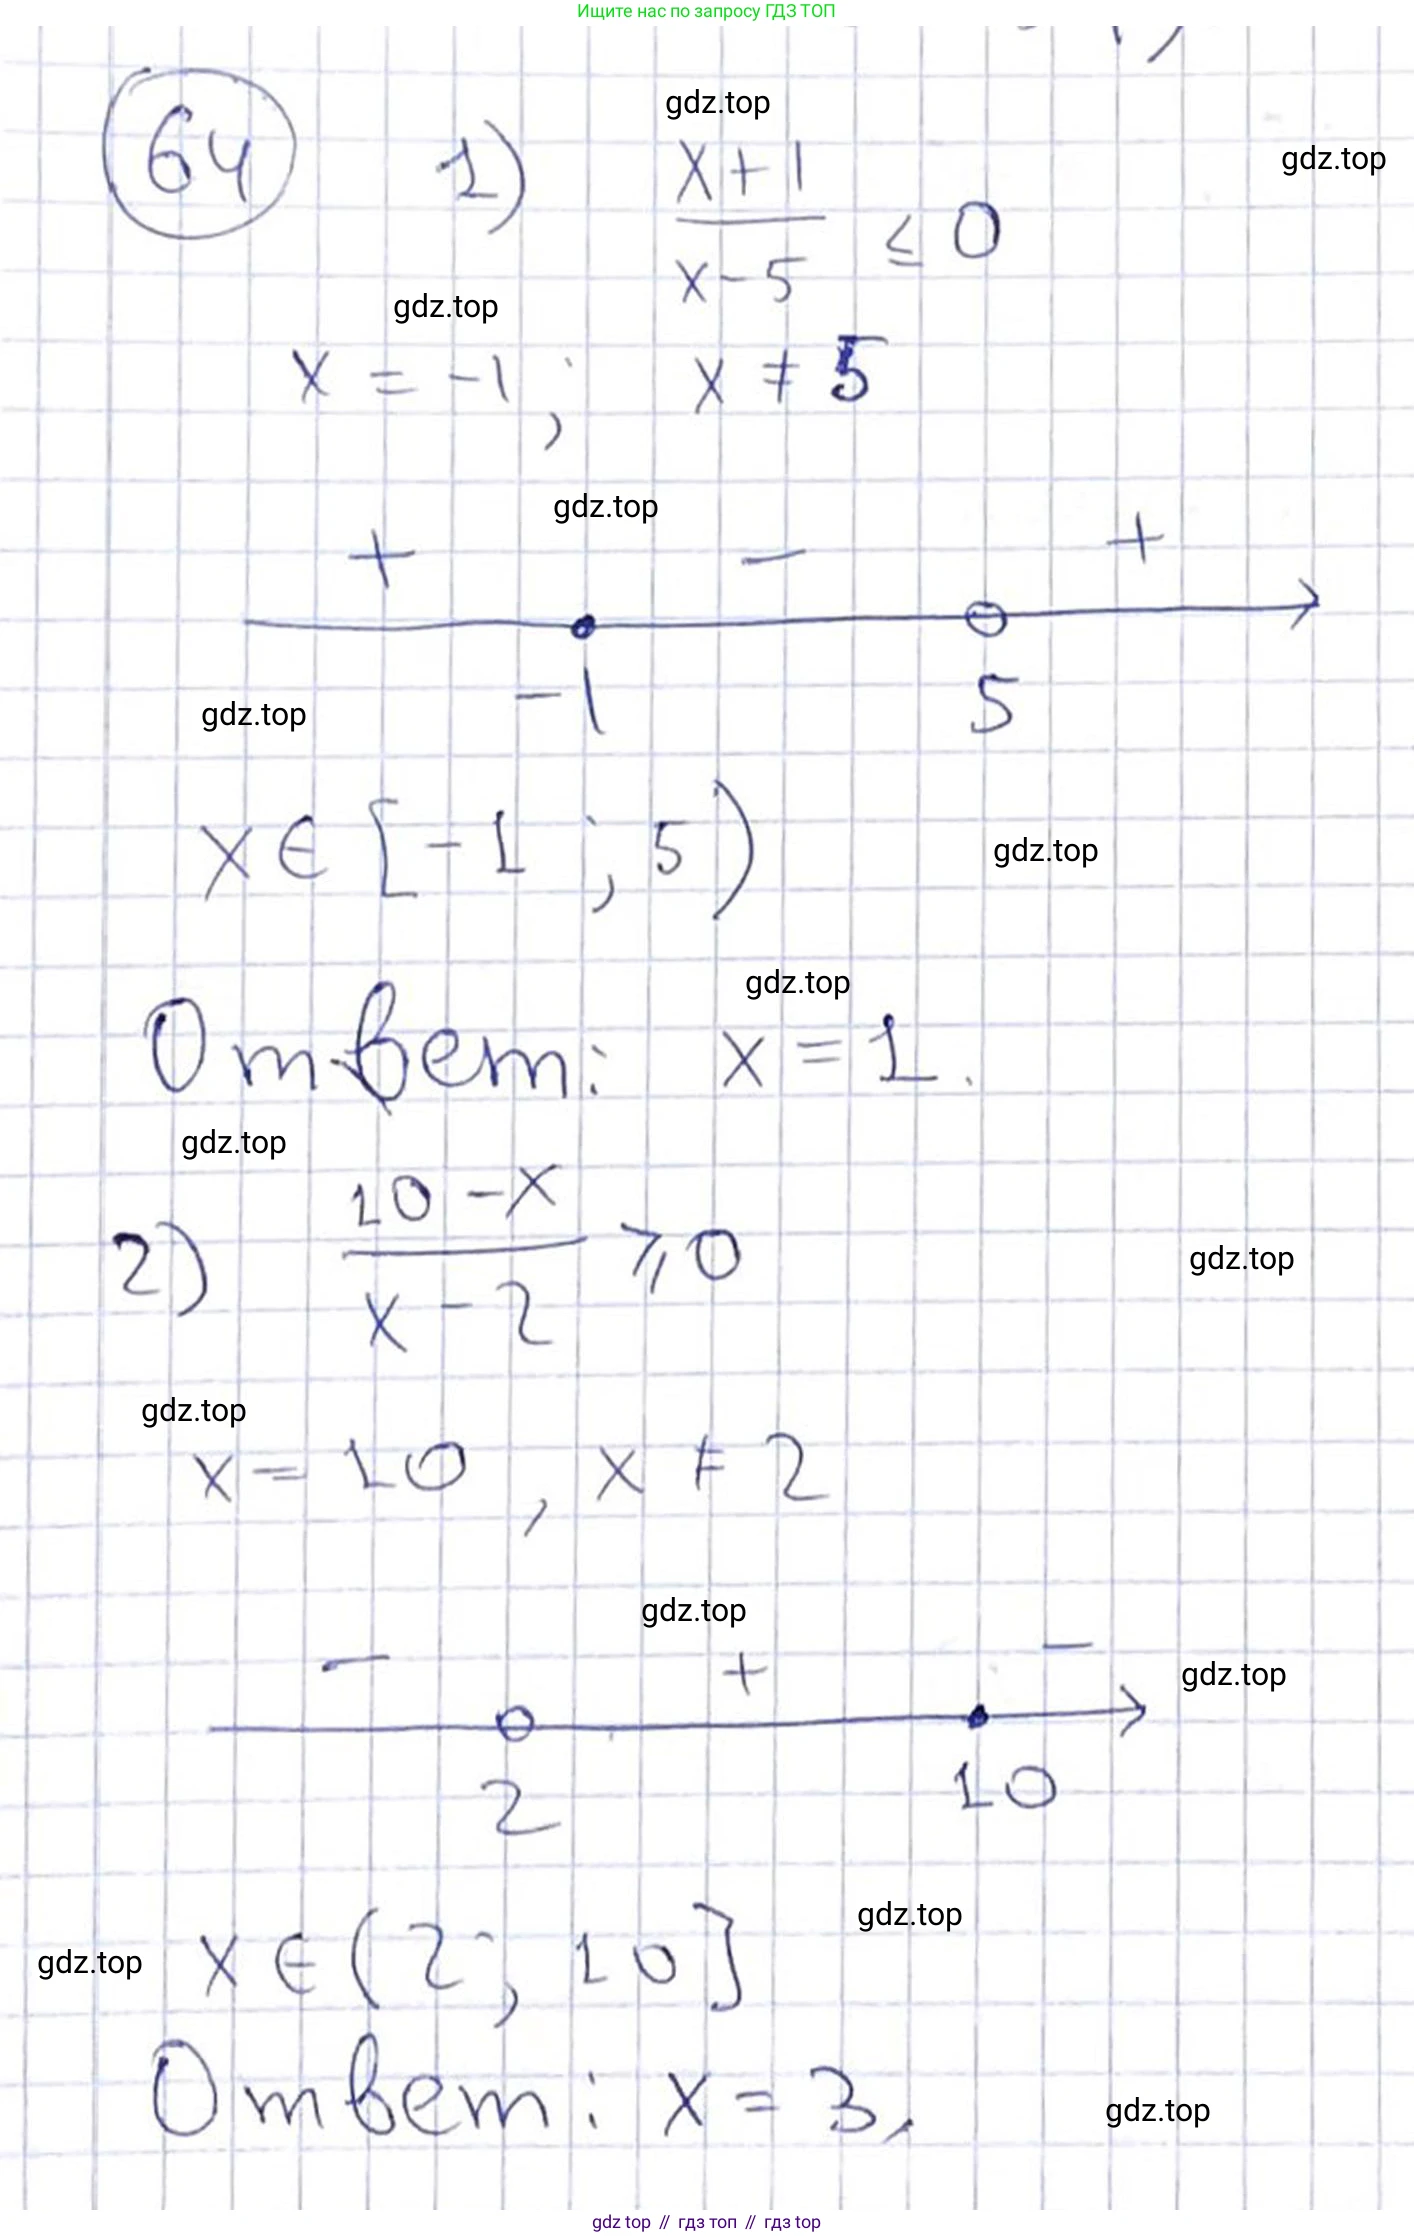 Ищите нас по запросу ГДЗ ТОП
gdz.top
gdz.top
64 1) x+1
x-5 ≤ 0
gdz.top
x = -1; x ≠ 5
gdz.top
+ - +
-1 5
gdz.top
x ∈ [-1; 5)
gdz.top
gdz.top
Ответ: x = 1.
gdz.top
2) 10-x
x-2 ⩾ 0
gdz.top
gdz.top
x = 10, x ≠ 2
gdz.top
- + -
gdz.top
2 10
gdz.top
gdz.top
x ∈ (2; 10]
Ответ: x = 3.
gdz.top
gdz top // гдз топ // gdz top